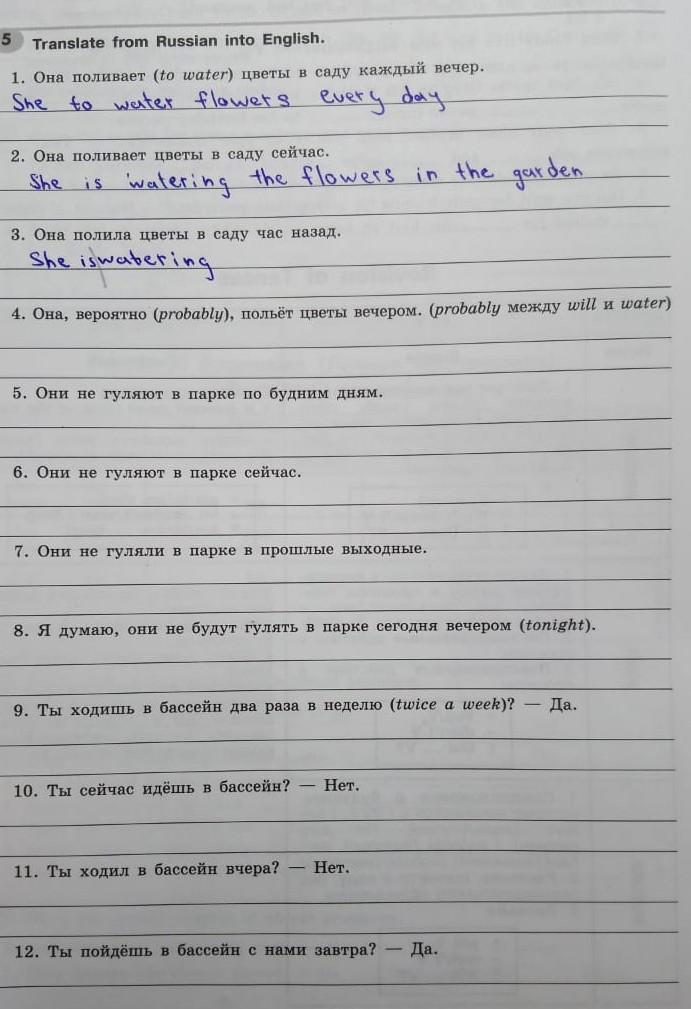 5 Translate from Russian into English.
1. Она поливает (to water) цветы в саду каждый вечер.
She to water flowers every day
2. Она поливает цветы в саду сейчас.
She is watering the flowers in the garden
3. Она полила цветы в саду час назад.
She is watering
4. Она, вероятно (probably), польёт цветы вечером. (probably между will и water)
5. Они не гуляют в парке по будним дням.
6. Они не гуляют в парке сейчас.
7. Они не гуляли в парке в прошлые выходные.
8. Я думаю, они не будут гулять в парке сегодня вечером (tonight).
9. Ты ходишь в бассейн два раза в неделю (twice a week)? — Да.
10. Ты сейчас идёшь в бассейн? — Нет.
11. Ты ходил в бассейн вчера? — Нет.
12. Ты пойдёшь в бассейн с нами завтра? — Да.